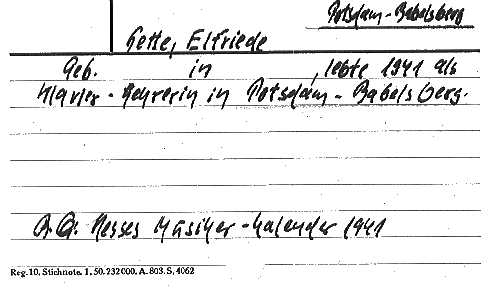 Potsdam-Babelsberg
Fette, Elfriede
Geb. in , lebte 1941 als
Klavier-Lehrerin in Potsdam-Babelsberg.
B.Q. Hesses Musiker-Kalender 1941
Reg. 10, Stichnote. 1. 50. 232000. A. 803. S. 4062